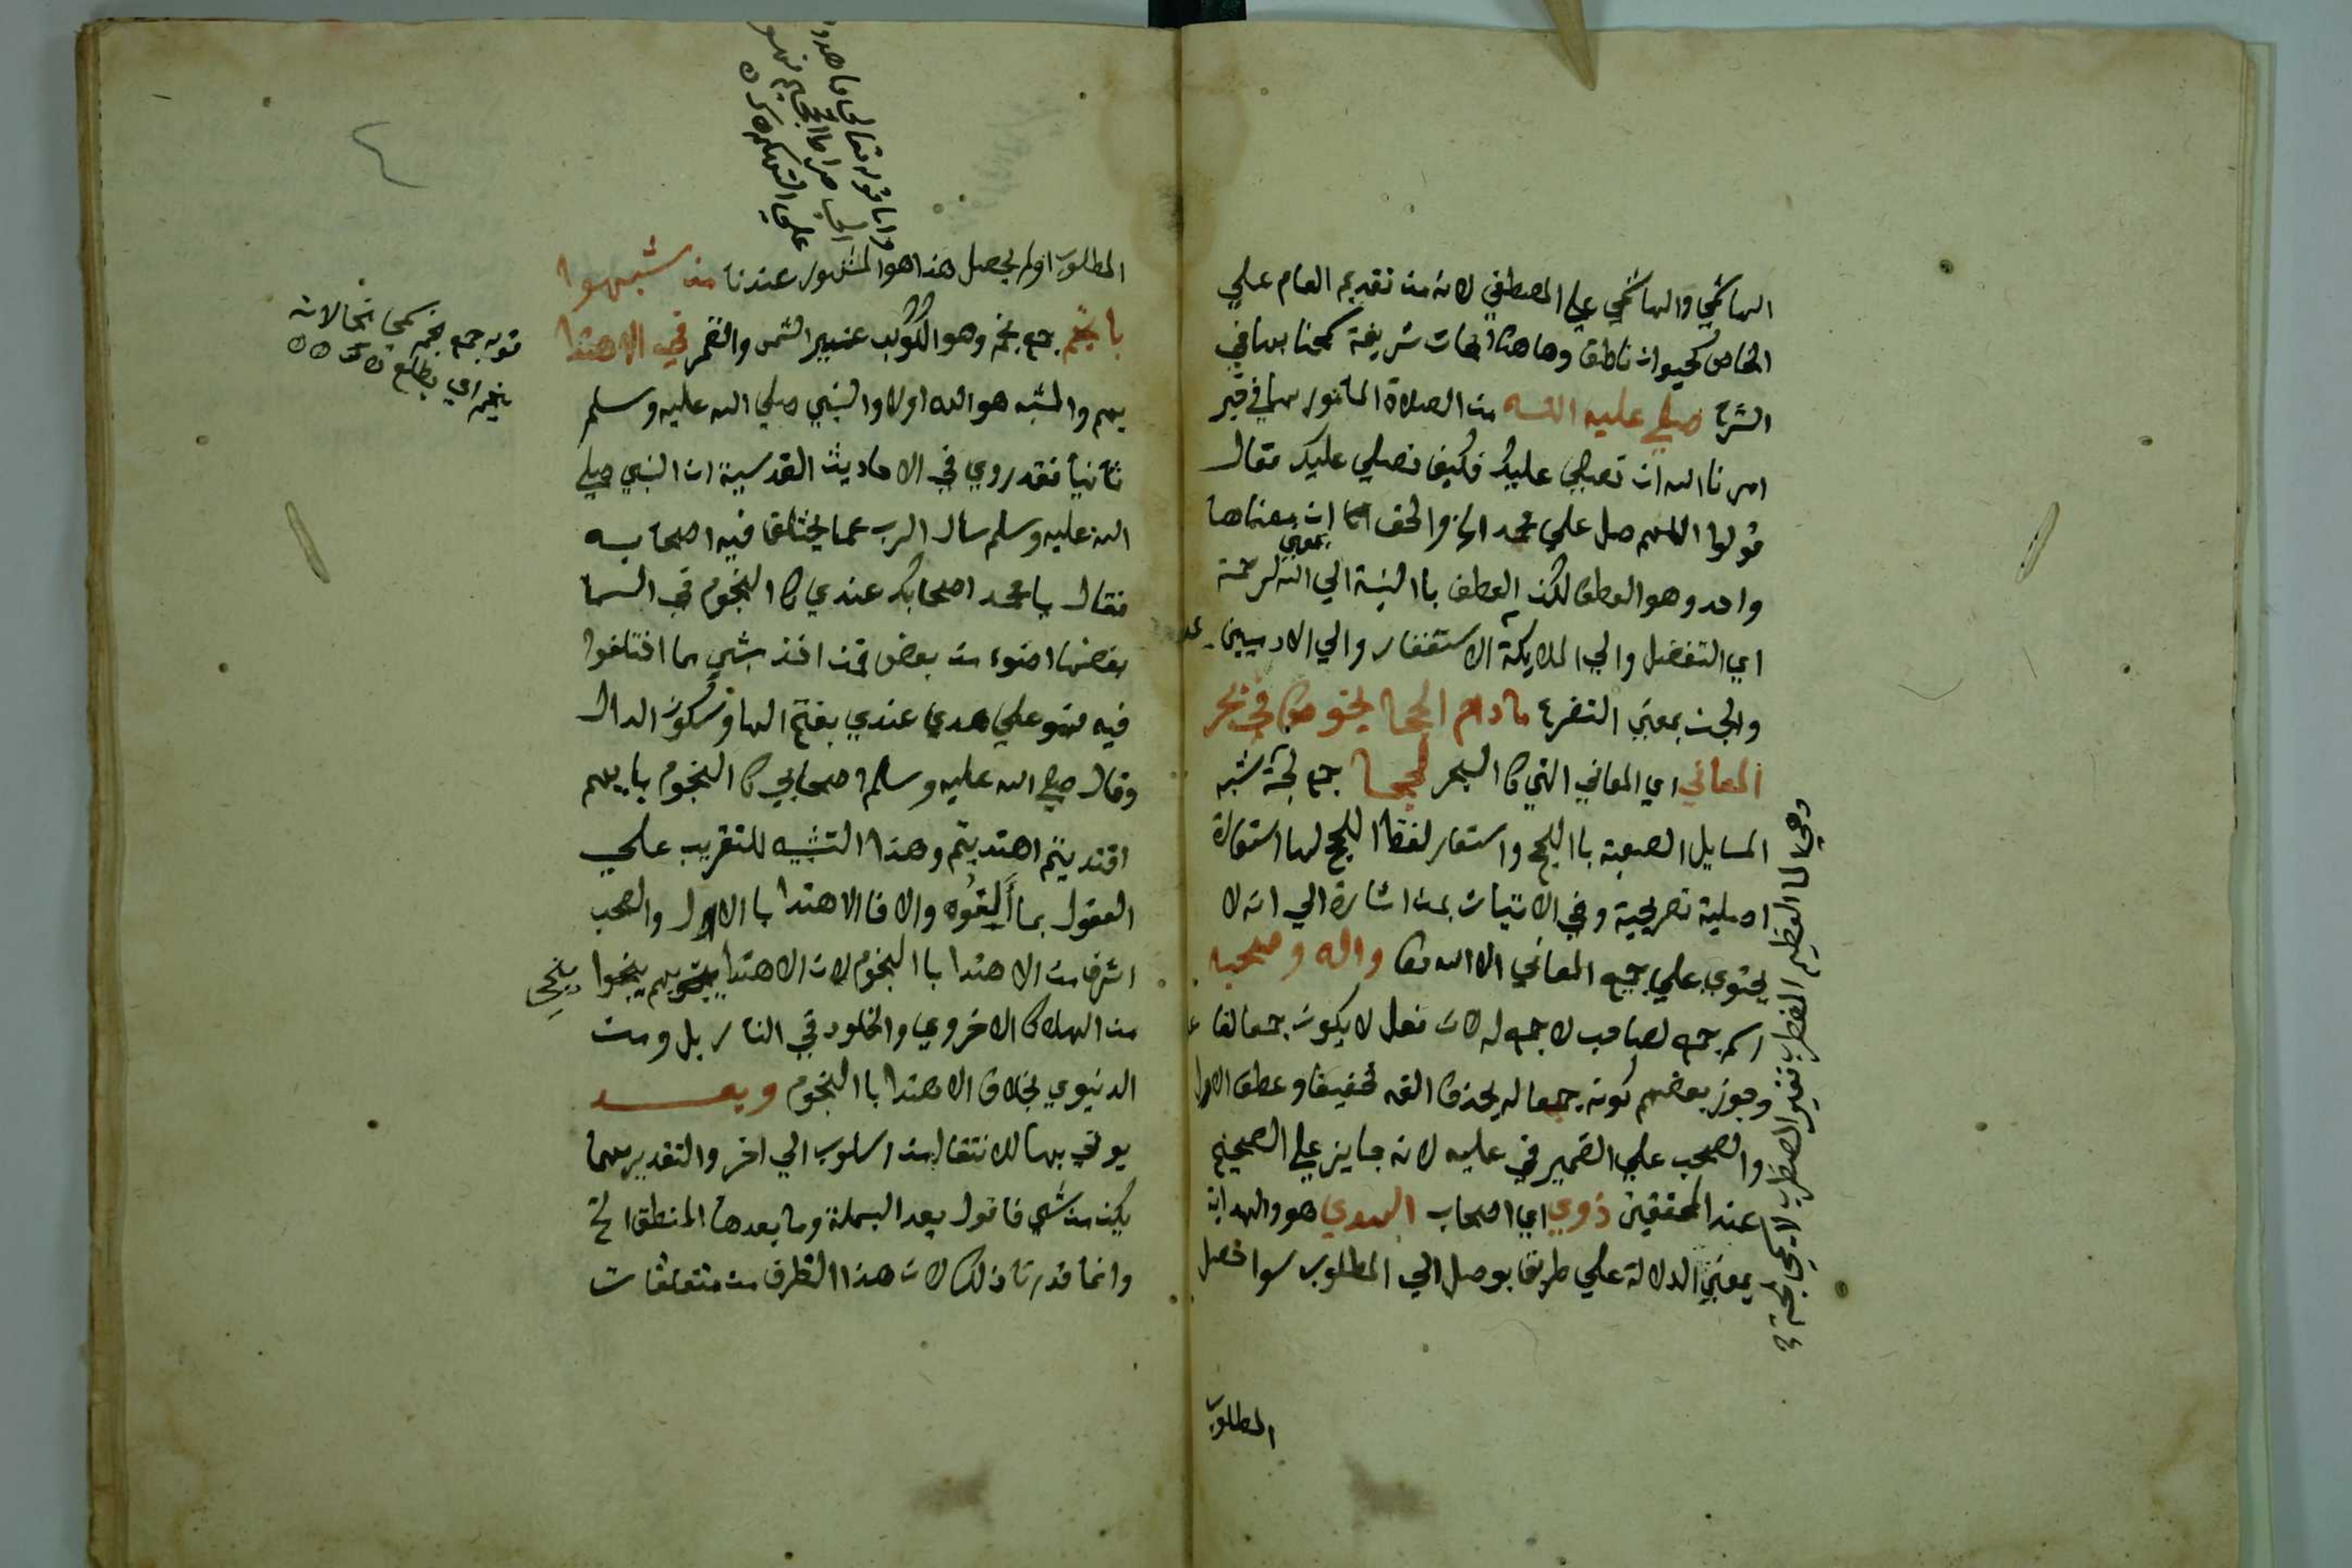 الهاشمي والهاشمي على المصطفي لانه من تقديم العام علي
الخاص كحيوان ناطق وها هنا ابحاث شريفة بها في
الشرح صلي عليه الله من الصلاة المامور بها في خبر
امرنا الله ان نصلي عليك فكيف نصلي عليك فقال
قولوا اللهم صل علي محمد الخ والحق ان معناها
واحد وهو العطف لكن العطف باالنسبة الي الله بمعني الرحمة
اي التفضل والي الملايكة الاستغفار والي الادميين
والجن بمعني التضرع مادام الحجا يخوض في بحر
المعاني اي المعاني التي كاالبحر لججا جمع لجة شبه
المسايل الصعبة باللجج واستعار لفظ اللجج لها استعارة
اصلية تصريحية وفي الاتيان بمن اشارة الي انه لا
يحتوي علي جميع المعاني الا الله واله وصحبه
اسم جمع لصاحب لا جمع له لان فعل لا يكون جمعا لفاعل
وجوز بعضهم كونه جمعا له بحذف الفه تخفيفا وعطف الاول
والصحب علي الضمير في عليه لانه جايز علي الصحيح
عند المحققين ذوي اي اصحاب الهدي هو والهداية
بمعني الدلالة علي طريق يوصل الي المطلوب سوا حصل
المطلوب
المطلوب اولم يحصل هذا هو المشهور عندنا من شبهوا
بانجم جمع نجم وهو الكوكب غير الشمس والقمر في الاهتدا
بهم والمشبه هو الله اولا والنبي صلي الله عليه وسلم
ثانيا فقد روي في الاحاديث القدسية ان النبي صلي
الله عليه وسلم سال الرب عما يختلف فيه اصحابه
فقال يا محمد اصحابك عندي كاالنجوم في السما
بعضها اضوء من بعض فمن اخذ بشي مما اختلفوا
فيه فهو علي هدي عندي بفتح الها وسكون الدال
وقال صلي الله عليه وسلم اصحابي كاالنجوم بايهم
اقتديتم اهتديتم وهذا التشبيه للتقريب علي
العقول بما ألِفُوه والا فالاهتدا باالال والصحب
اشرف من الاهتدا باالنجوم لان الاهتدا بهم ينجوا
من الهلاك الاخروي والخلود في النار بل ومن
الدنيوي بخلاف الاهتدا باالنجوم وبعد
يوتي بها للانتقال من اسلوب الي اخر والتقدير مهما
يكن من شي فاقول بعد البسملة وما بعدها المنطق الخ
وانما قدرنا ذلك لان هذا الظرف من متعلقات
قوله جمع نجم